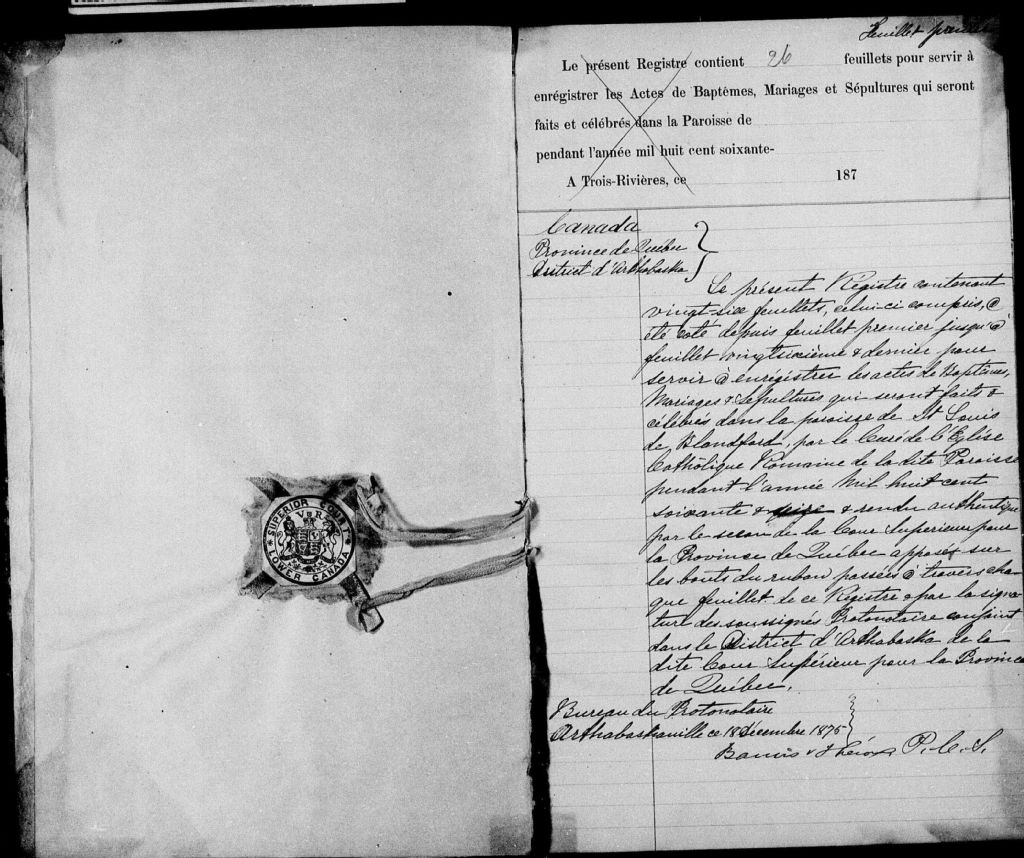 Feuillet premier
Le présent Registre contient 26 feuillets pour servir à
enrégistrer les Actes de Baptêmes, Mariages et Sépultures qui seront
faits et célébrés dans la Paroisse de
pendant l'année mil huit cent soixante-
A Trois-Rivières, ce 187
Canada
Province de Québec
District d'Arthabaska
Le présent Régistre contenant
vingt-six feuillets, celui-ci compris, a
été coté depuis feuillet premier jusqu'à
feuillet vingtsixième & dernier pour
servir à enrégistrer les actes de Baptêmes,
Mariages & Sépultures qui seront faits &
célébrés dans la paroisse de St Louis
de Blandford, par le Curé de l'Eglise
Catholique Romaine de la dite Paroisse
pendant l'année Mil huit cent
soixante & seize & rendu authentique
par le sceau de la Cour Superieure pour
la Province de Québec apposé sur
les bouts du ruban passés à travers cha-
que feuillet de ce Registre & par la signa-
ture des soussignés Protonotaire conjoint
dans le District d'Arthabaska de la
dite Cour Supérieure pour la Province
de Québec.
Bureau du Protonotaire
Arthabaskaville ce 18 Décembre 1875
P. C. S.
SUPERIOR COURT
V R
LOWER CANADA